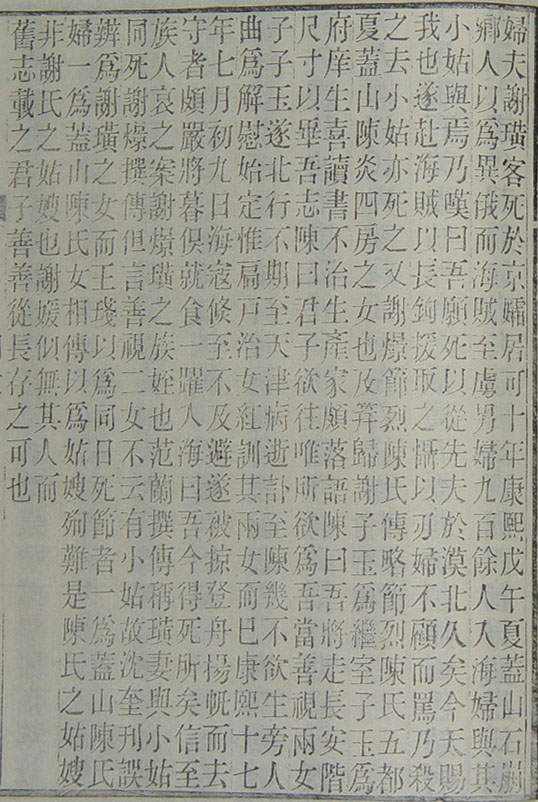 婦夫謝璜客死於京孀居可十年康熙戊午夏蓋山石㵎
鄉人以爲異俄而海賊至虜男婦九百餘人入海婦與其
小姑與焉乃嘆曰吾願死以從先夫於漠北久矣今天賜
我也遂赴海賊以長鉤援取之㦗以刃婦不顧而罵乃殺
之去小姑亦死之又謝㷼節烈陳氏傳略節烈陳氏五都
夏蓋山陳炎四房之女也及笄歸謝子玉爲繼室子玉爲
府庠生喜讀書不治生產家頗落語陳曰吾將走長安階
尺寸以畢吾志陳曰君子欲往唯所欲爲吾當善視兩女
子子玉遂北行不期至天津病逝訃至陳幾不欲生旁人
曲爲解慰始定惟扃戸治女紅訓其兩女而已康熙十七
年七月初九日海寇倏至不及避遂被掠登舟揚帆而去
守者頗嚴將暮俟就食一躍入海曰吾今得死所矣信至
族人哀之案謝㷼璜之族姪也范蘭撰傳稱璜妻與小姑
同死謝㷼撰傳但言善視二女不云有小姑故沈奎刊誤
辨爲謝璜之女而王琖以爲同日死節者一爲蓋山陳氏
婦一爲蓋山陳氏女相傳以爲姑嫂殉難是陳氏之姑嫂
非謝氏之姑嫂也謝媛似無其人而
舊志載之君子善善從長存之可也